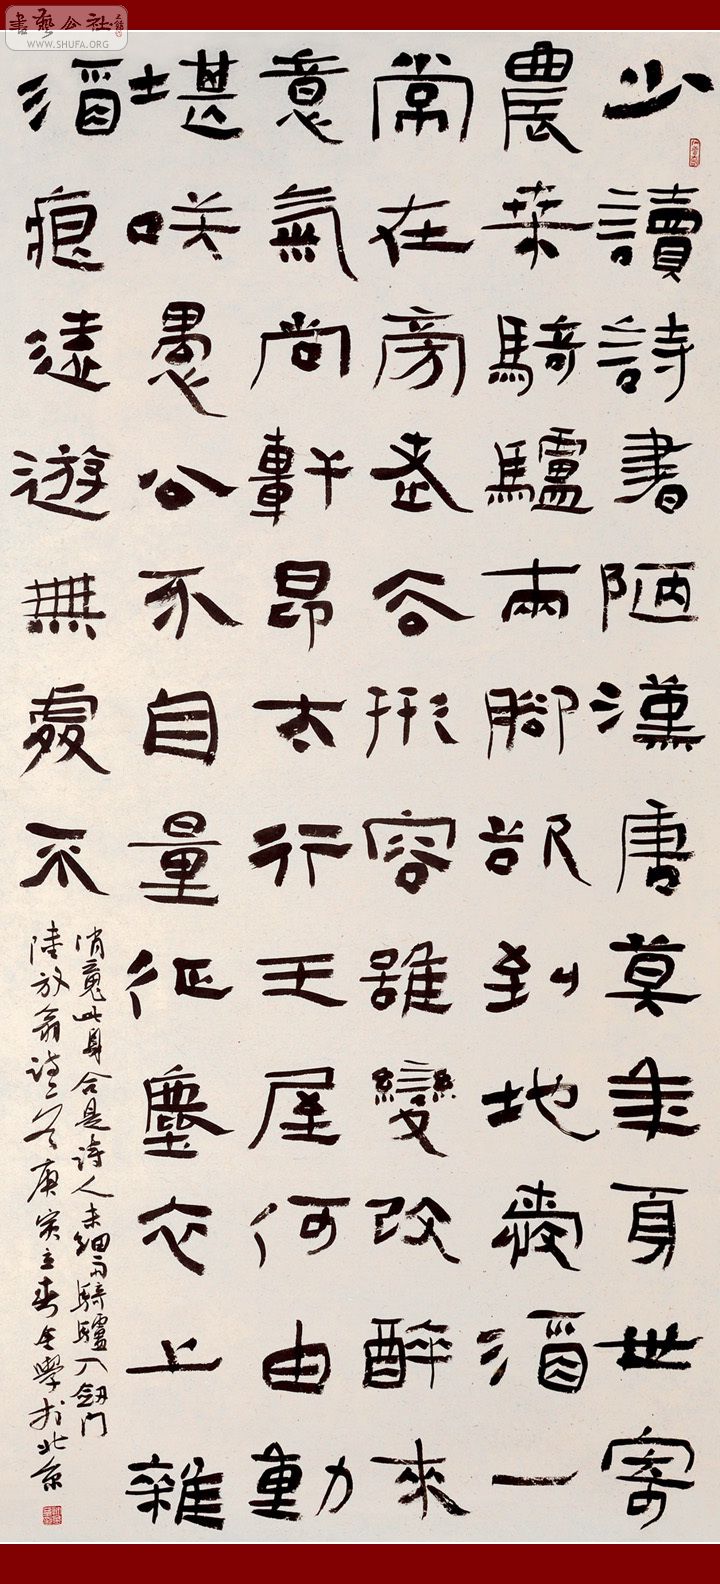 書藝公社
WWW.SHUFA.ORG
少讀詩書陋漢唐莫年身世寄
農桒騎驢兩腳欲到地愛酒一
常在旁老去形容雖變改醉來
意氣尚軒昂太行王屋何由動
堪咲愚公不自量征塵衣上雜
酒痕遠遊無處不
消魂此身合是詩人未細雨騎驢入劒门
陸放翁詩二首庚寅立春學於北京